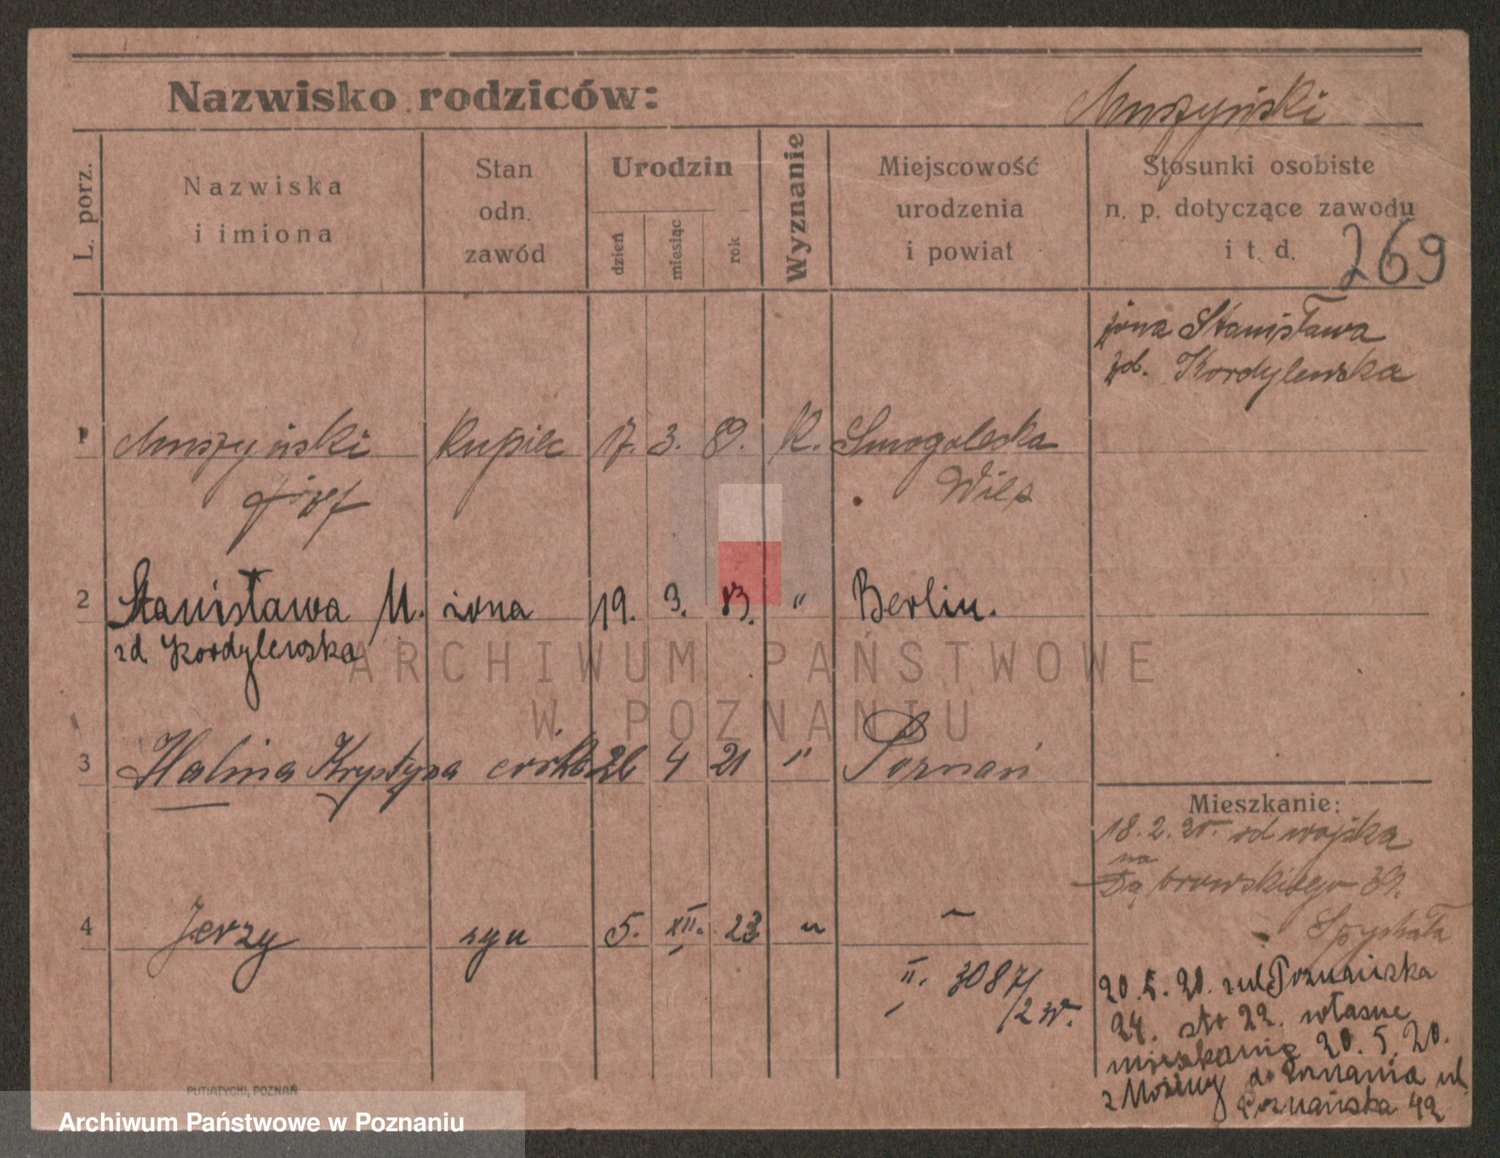 Nazwisko rodziców: Muszyński
L. porz.
Nazwiska
i imiona
Stan
odn.
zawód
Urodzin
dzień
miesiąc
rok
Wyznanie
Miejscowość
urodzenia
i powiat
Stosunki osobiste
n. p. dotyczące zawodu
i t. d.
269
żona Stanisława
zd. Kordylewska
1 Muszyński kupiec 17. 3. 89. K. Smogolecka
Józef Wieś
2 Stanisława M. żona 19. 3. 93. " Berlin.
zd. Kordylewska
ARCHIWUM PAŃSTWOWE
W POZNANIU
3 Halina Krystyna córka 26 4 21 " Poznań
Mieszkanie:
18.2.20. od wojska
na
Dąbrowskiego 39.
Spychała
4 Jerzy syn 5. XII. 23 " "
II. 3087/
20.5.20. z ul Poznańska
24. str 22. własne
mieszkanie 20.5.20.
z Mosiny do Poznania ul
Poznańska 42
PUTIATYCKI, POZNAŃ
Archiwum Państwowe w Poznaniu